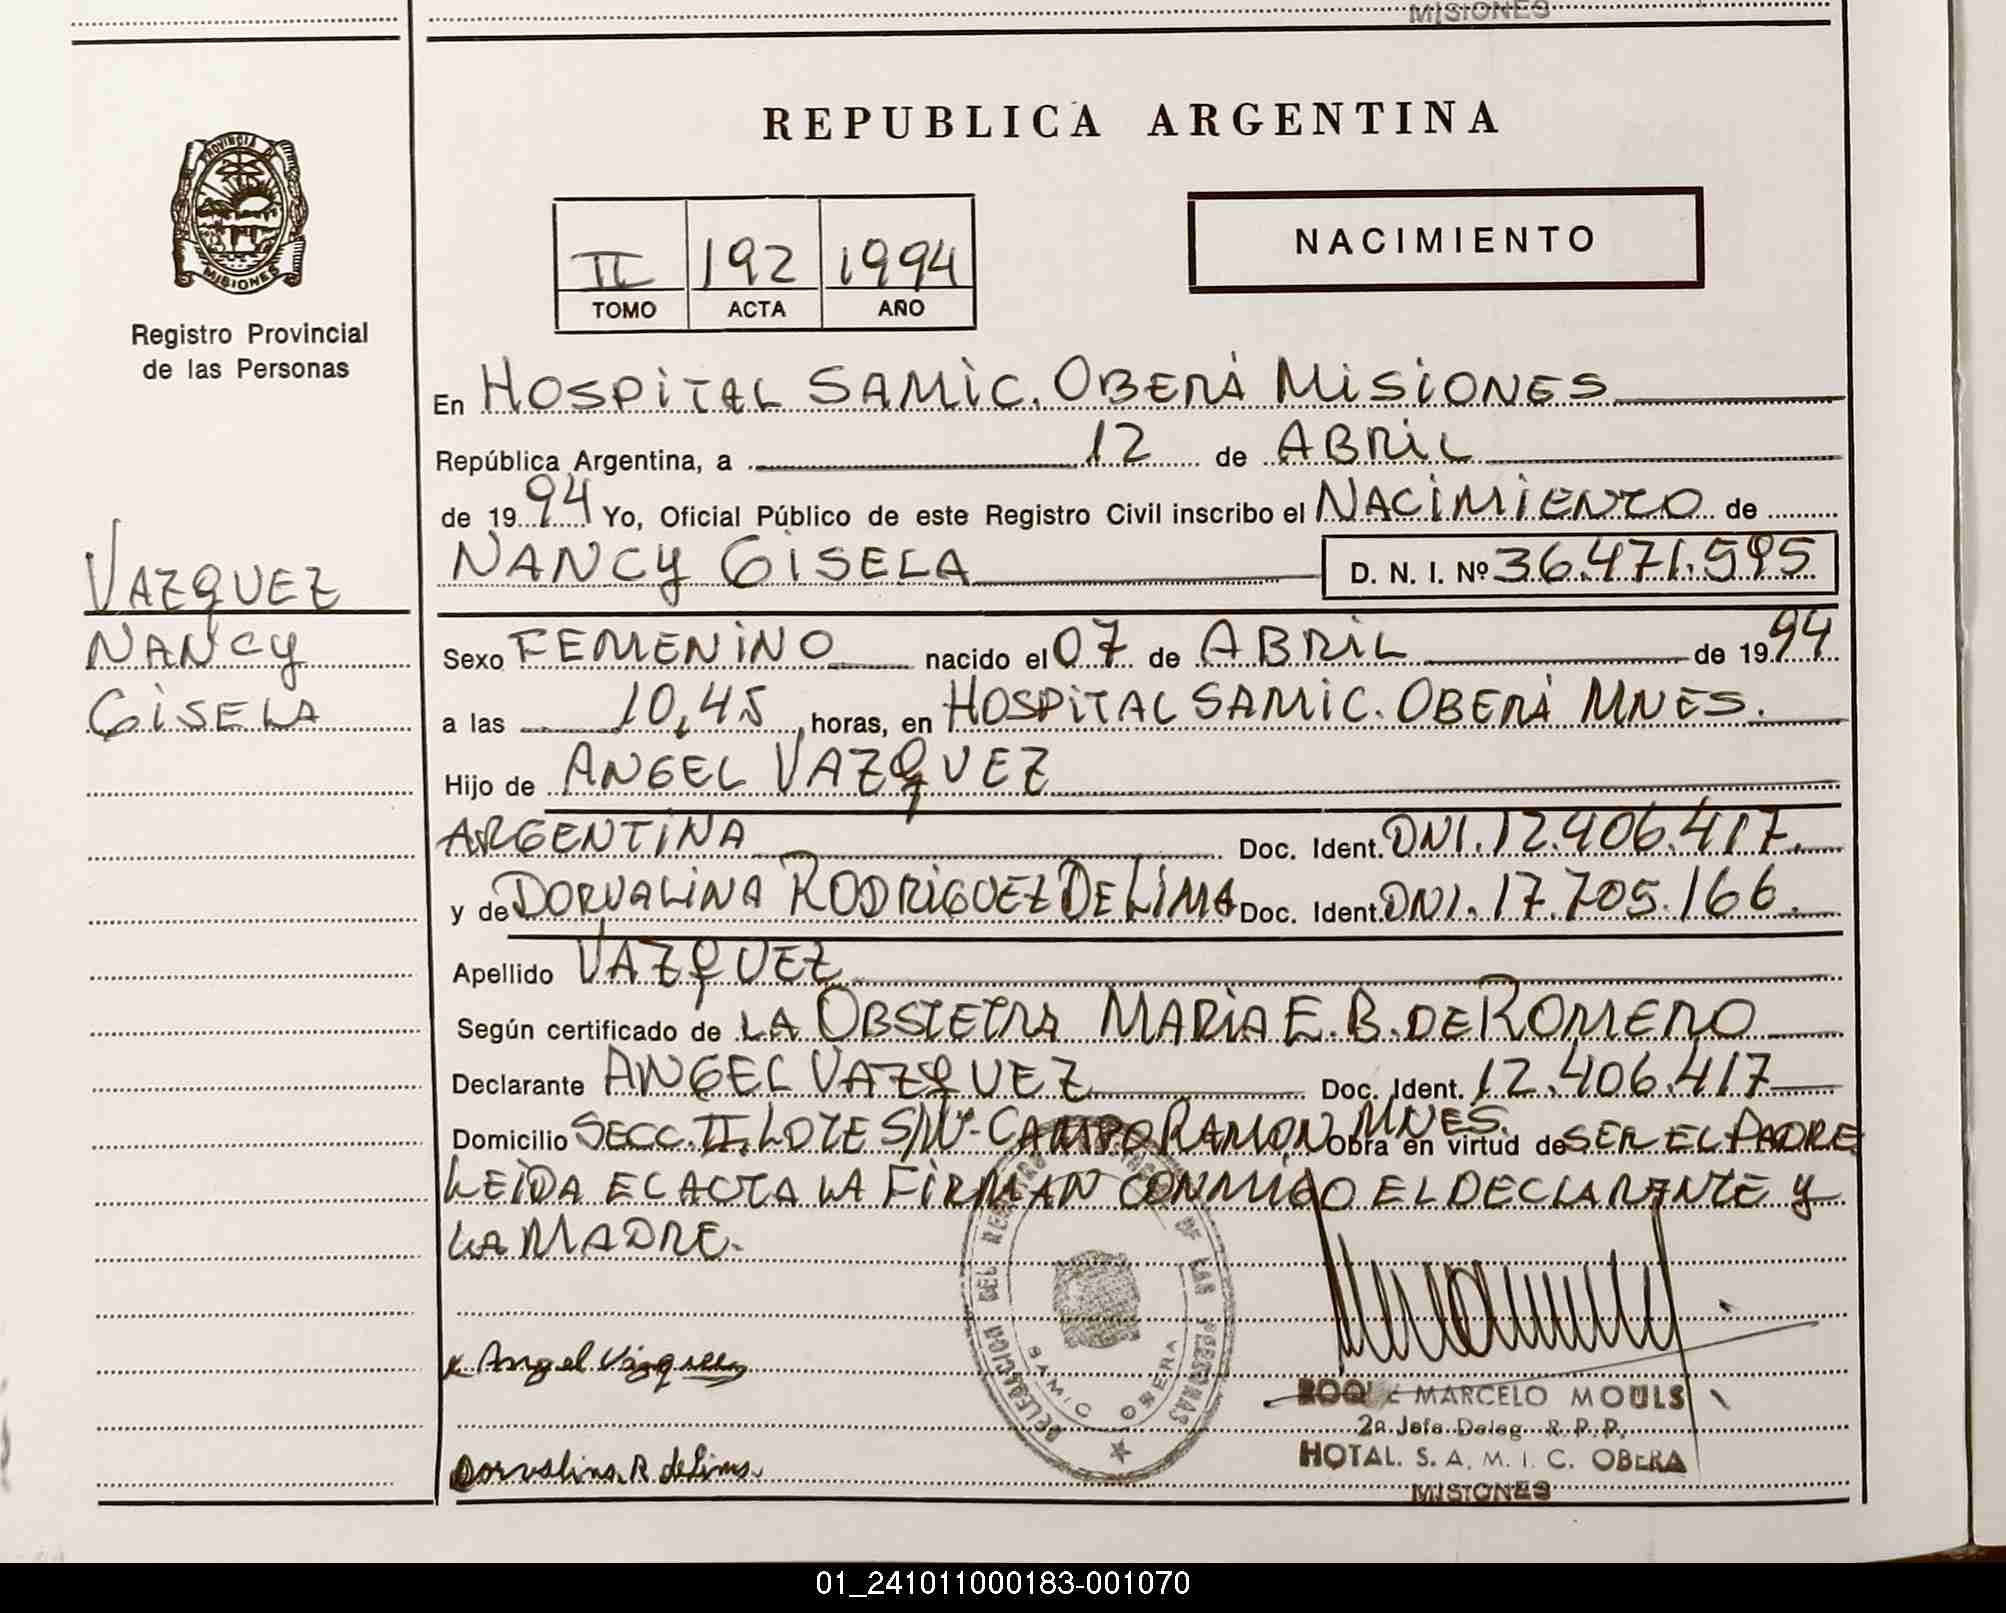 MISIONES
REPUBLICA ARGENTINA
PROVINCIA DE
MISIONES
Registro Provincial
de las Personas
II 192 1994
TOMO ACTA AÑO
NACIMIENTO
En HOSPITAL SAMIC. OBERÁ MISIONES
República Argentina, a 12 de ABRIL
de 1994 Yo, Oficial Público de este Registro Civil inscribo el NACIMIENTO de
VAZQUEZ
NANCY
GISELA
NANCY GISELA D. N. I. Nº 36.471.595
Sexo FEMENINO nacido el 07 de ABRIL de 1994
a las 10,45 horas, en HOSPITAL SAMIC. OBERÁ MNES.
Hijo de ANGEL VAZQUEZ
ARGENTINA Doc. Ident. DNI. 12.406.417.
y de DORVALINA RODRIGUEZ DE LIMA Doc. Ident. DNI. 17.705.166.
Apellido VAZQUEZ
Según certificado de LA OBSTETRA MARIA E. B. DE ROMERO
Declarante ANGEL VAZQUEZ Doc. Ident. 12.406.417
Domicilio SECC. II. LOTE S/Nº- CAMPO RAMON MNES. Obra en virtud de SER EL PADRE
LEIDA EL ACTA LA FIRMAN CONMIGO EL DECLARANTE y
LA MADRE.
DELEGACION DEL REGISTRO DE LAS PERSONAS
SAMIC OBERA
x Angel Vázquez
ROQUE MARCELO MOULS
2a Jefe Deleg. R. P. P.
HOTAL. S. A. M. I. C. OBERA
MISIONES
Dorvalina R de Lima
01_241011000183-001070